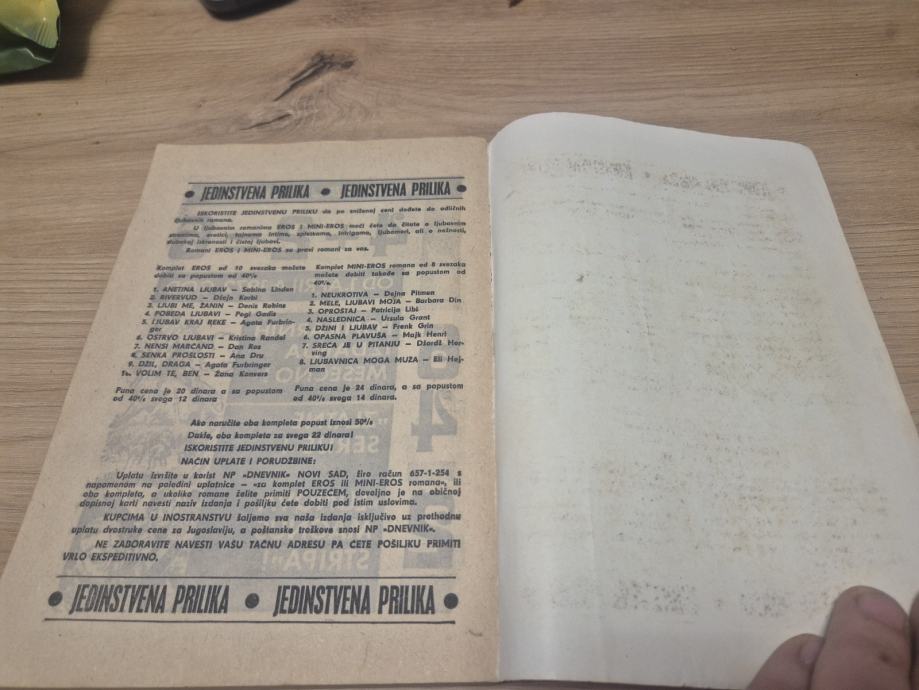 ● JEDINSTVENA PRILIKA ● JEDINSTVENA PRILIKA ●
ISKORISTITE JEDINSTVENU PRILIKU da po sniženoj ceni dođete do odličnih
ljubavnih romana.
U ljubavnim romanima EROS i MINI-EROS moći ćete da čitate o ljubavnim
strastima, erotici, tajnama intima, spletkama, intrigama, ljubomori, ali o nežnosti,
dubokoj iskrenosti i čistoj ljubavi.
Romani EROS i MINI-EROS su pravi romani za vas.
Komplet EROS od 10 svezaka možete
dobiti sa popustom od 40%
1. ANETINA LJUBAV — Sabina Linden
2. RIVERVUD — Džejn Korbi
3. LJUBI ME, ŽANIN — Denis Robins
4. POBEDA LJUBAVI — Pegi Gadis
5. LJUBAV KRAJ REKE — Agata Furbrin-
ger
6. OSTRVO LJUBAVI — Kristina Randel
7. NENSI MARČAND — Dan Ros
8. SENKA PROŠLOSTI — Ana Dru
9. DŽIL, DRAGA — Agata Furbringer
10. VOLIM TE, BEN — Žana Konvers
Puna cena je 20 dinara a sa popustom
od 40% svega 12 dinara
Komplet MINI-EROS romana od 8 svezaka
možete dobiti takođe sa popustom od
40%.
1. NEUKROTIVA — Dejna Pitmen
2. MELE, LJUBAVI MOJA — Barbara Din
3. OPROSTAJ — Patricija Libi
4. NASLEDNICA — Ursula Grant
5. DŽINI I LJUBAV — Frenk Grin
6. OPASNA PLAVUŠA — Majk Henri
7. SREĆA JE U PITANJU — Džordž Her-
ving
8. LJUBAVNICA MOGA MUŽA — Eli Hej-
man
Puna cena je 24 dinara, a sa popustom
od 40% svega 14 dinara.
Ako naručite oba kompleta popust iznosi 50%
Dakle, oba kompleta za svega 22 dinara!
ISKORISTITE JEDINSTVENU PRILIKU!
NAČIN UPLATE I PORUDŽBINE:
Uplatu izvršite u korist NP »DNEVNIK« NOVI SAD, žiro račun 657-1-254 s
napomenom na poleđini uplatnice — »za komplet EROS ili MINI-EROS romana«, ili
oba kompleta, a ukoliko romane želite primiti POUZEĆEM, dovoljno je na običnoj
dopisnoj karti navesti naziv izdanja i pošiljku ćete dobiti pod istim uslovima.
KUPCIMA U INOSTRANSTVU šaljemo sva naša izdanja isključivo uz prethodnu
uplatu dvostruke cene za Jugoslaviju, a poštanske troškove snosi NP »DNEVNIK«.
NE ZABORAVITE NAVESTI VAŠU TAČNU ADRESU PA ĆETE POŠILJKU PRIMITI
VRLO EKSPEDITIVNO.
● JEDINSTVENA PRILIKA ● JEDINSTVENA PRILIKA ●